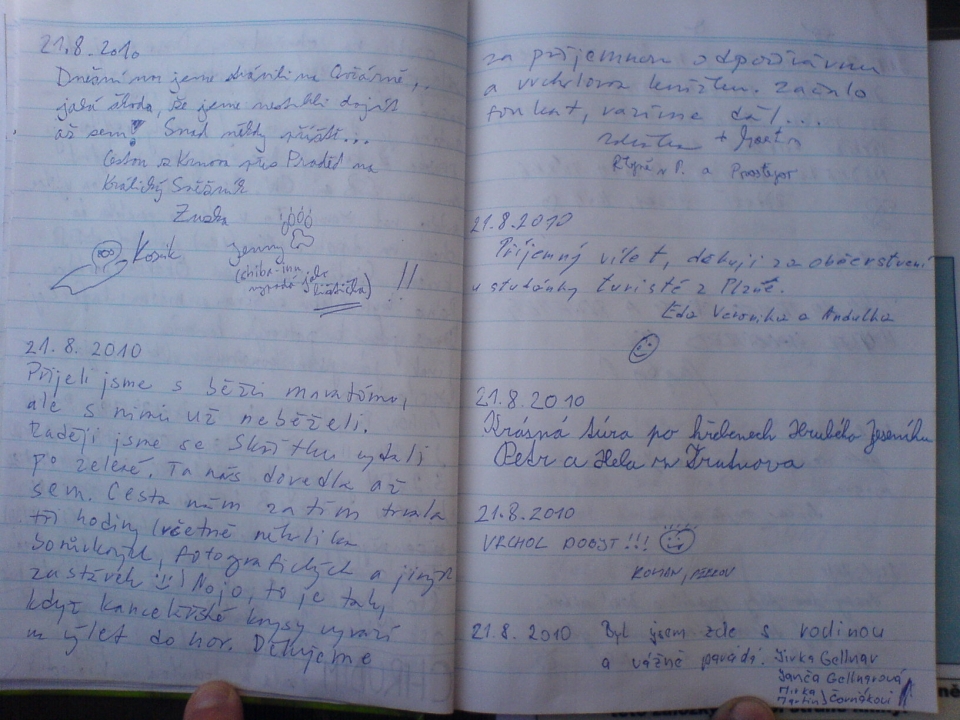 21.8.2010
Dnešní noc jsme strávili na Ovčárně,
jaká škoda, že jsme nestihli dojít
až sem! Snad někdy příště...
Cestou z Krnova přes Praděd na
Králický Sněžník
Zuzka
Kosik
Jenny
(chiba-inu,
vypadá jako
lištička) !!
21. 8. 2010
Přijeli jsme s běžci maratónu,
ale s nimi už neběželi.
Raději jsme se Skřítku vydali
po zelené. Ta nás dovedla až
sem. Cesta nám zatím trvala
tři hodiny (včetně několika
borůvkových, fotografických a jiných
zastávek :) Nojo, to je tak,
když kancelářské krysy vyrazí
na výlet do hor. Děkujeme
za příjemnou odpočívárnu
a vrcholovou knížku. Začalo
foukat, vazíme dál...
+
Štěpán P. a Prostějov
21.8.2010
Příjemný výlet, děkuji za občerstvení
u studánky turisté z Plzně.
Eda Veronika a Andulka
21.8.2010
Krásná túra po hřebenech Hrubého Jeseníku
Petr a Hela z Trutnova
21.8.2010
VRCHOL DOBYT!!!
ROMAN,
21.8. 2010 Byl jsem zde s rodinou
a vážně paráda. Jirka Gellnar
Janča Gellnarová
Mirka
Martin} Čornákovi